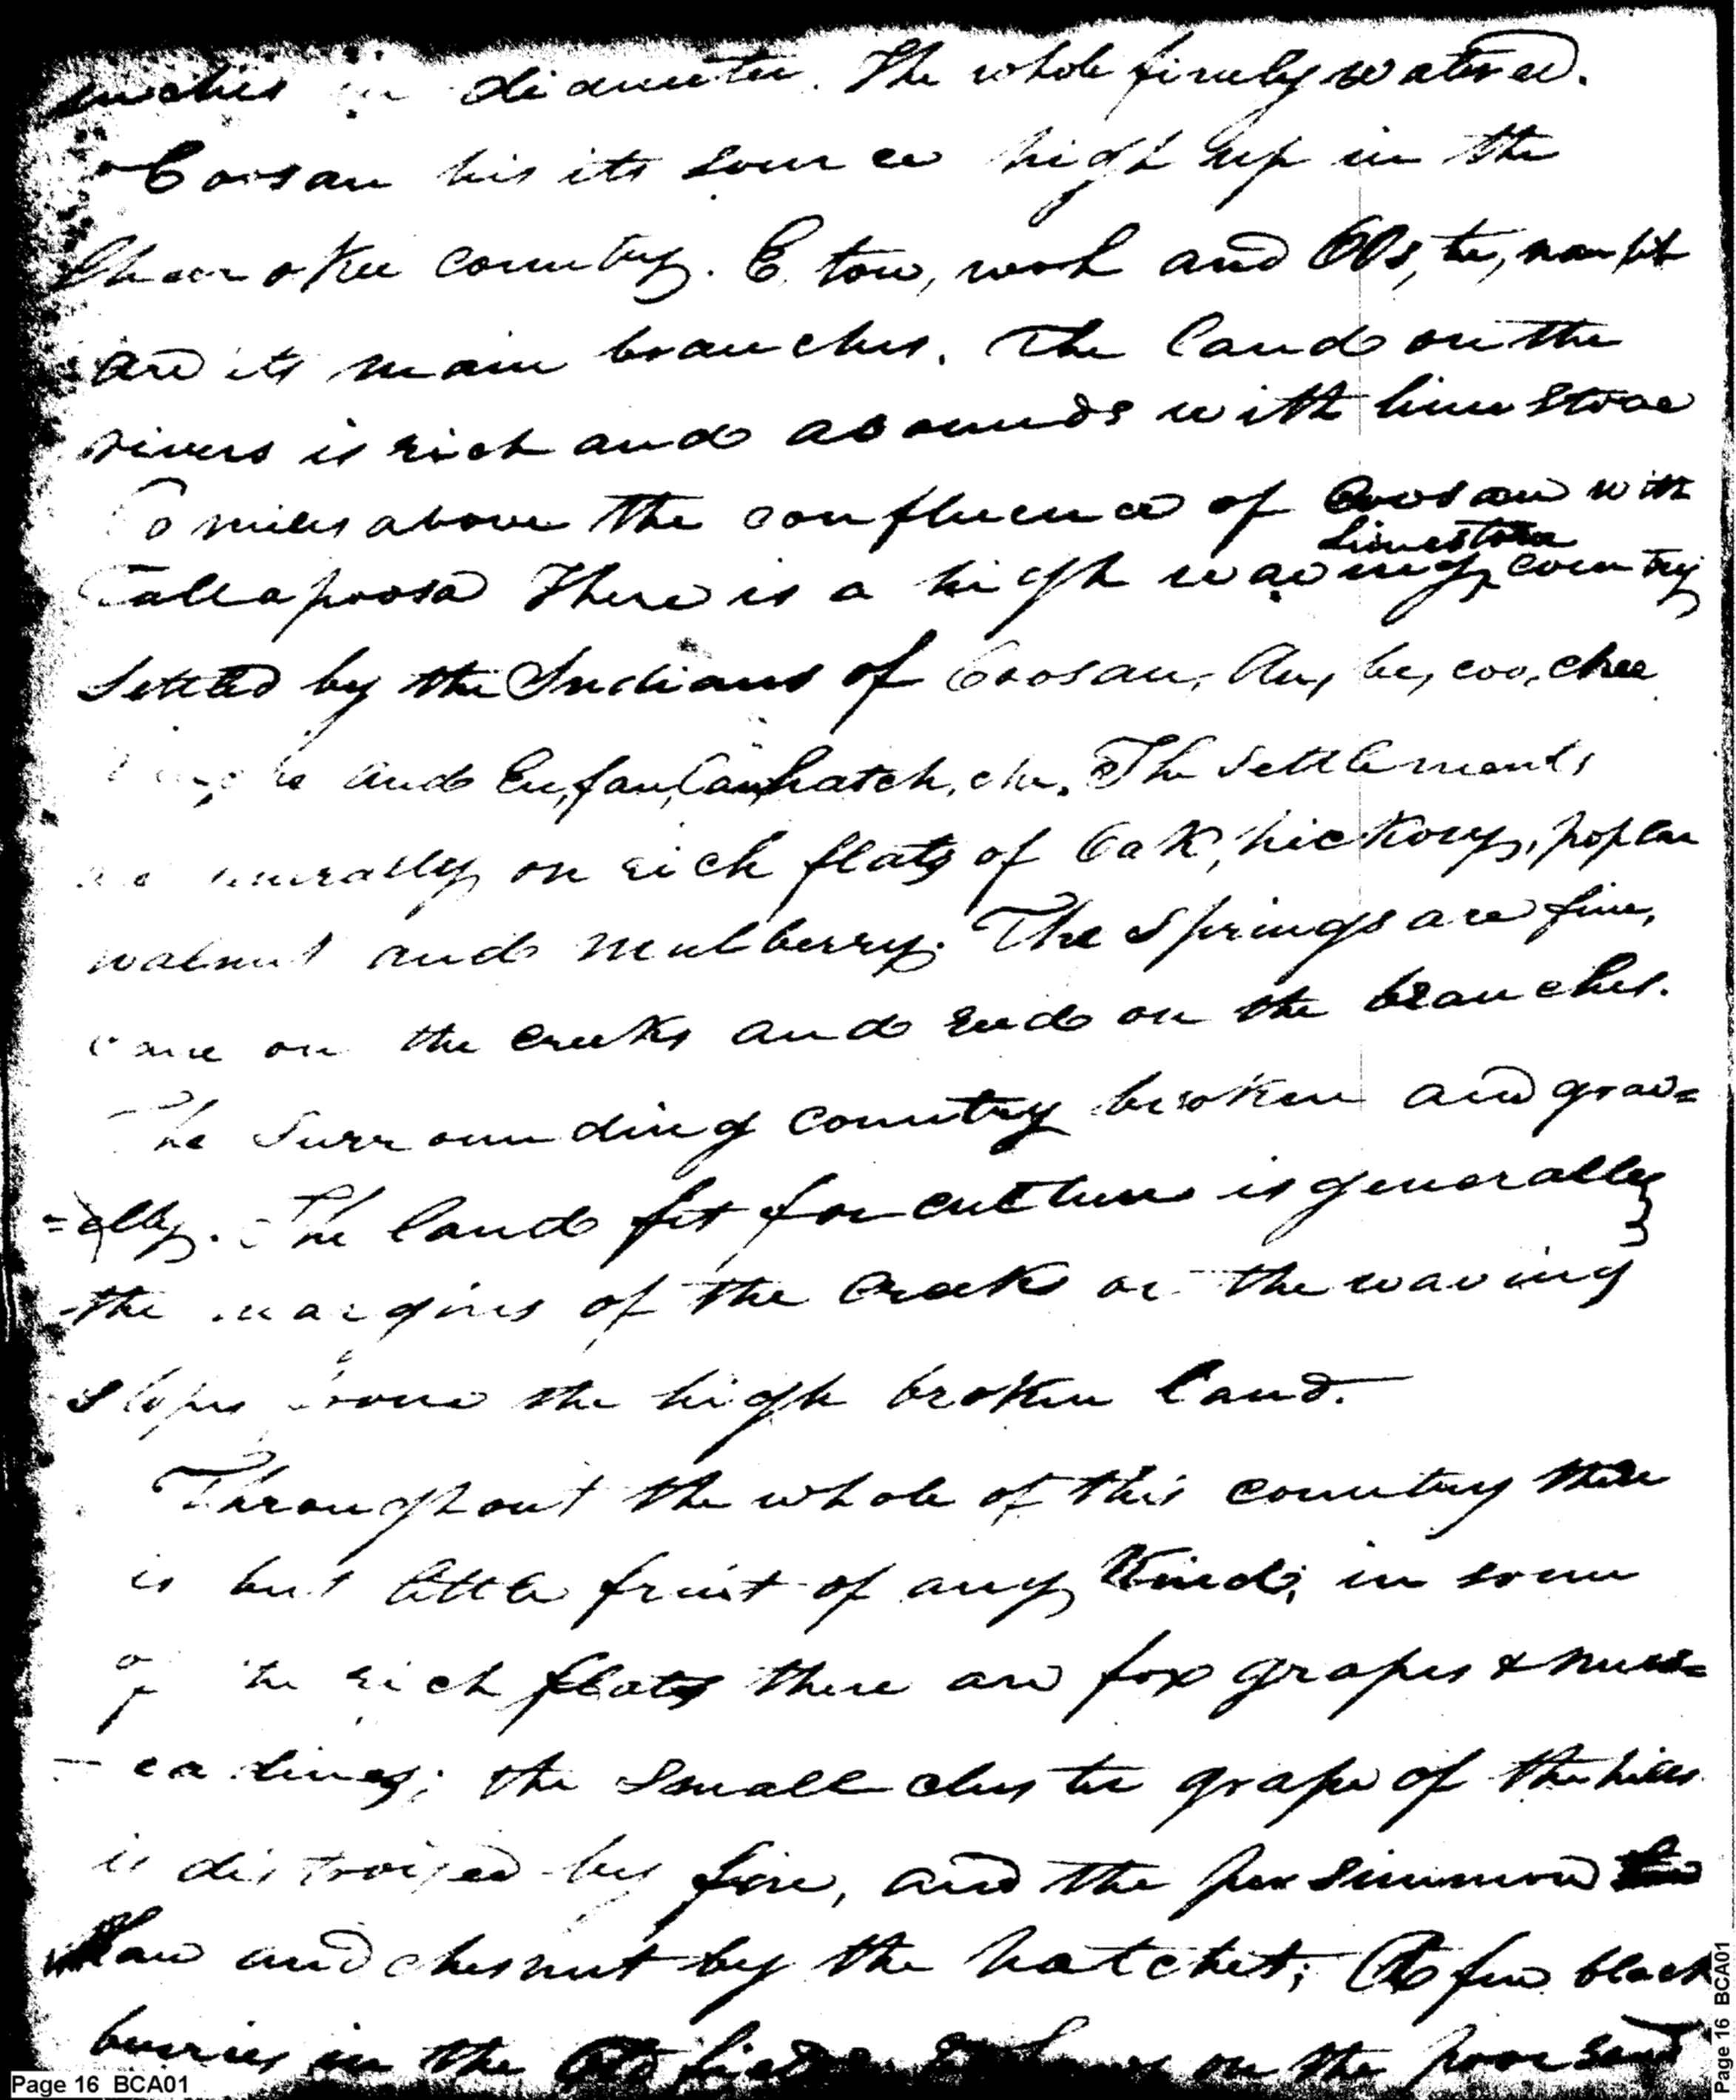 inches in diameter. The whole finely watered.
Coosau his its source high up in the
Cheerokee country. E, tow, woh and Oos, te, nau lih
are its main branches. The land on the
rivers is rich and abounds with limestone
60 miles above the confluence of Coosau with
Limestone
Tallapoosa There is a high waving, country
Settled by the Indians of Coosau, Au, be, coo, chee
and Eu, fau, lau, hatch, che. The Settlements
are generally on rich flats of Oak, hickory, poplar
walnut and mulberry. The Springs are fine,
cane on the creeks and reed on the branches.
The Surrounding country broken and grav=
=elly. The land fit for culture is generally
the margins of the creeks or the waving
slopes from the high broken land.
Throughout the whole of this country there
is but little fruit of any Kind; in some
of the rich flats there are fox grapes & mus=
- cadines; the small cluster grape of the hills
is distroiyed by fire, and the persimmon
Haw and chesnut by the hatchet; A few black
berries in the old fields on the poor sand
Page 16 BCA01
Page 16 BCA01